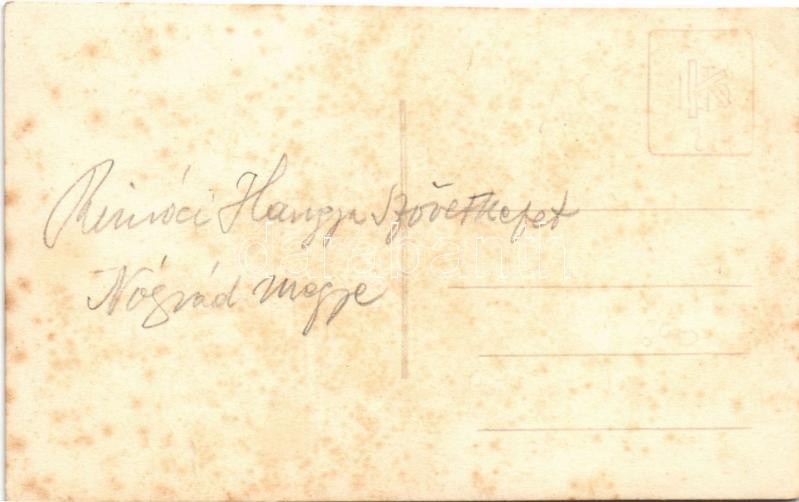 Rimóci Hangya Szövetkezet
Nógrád megye
darabanth